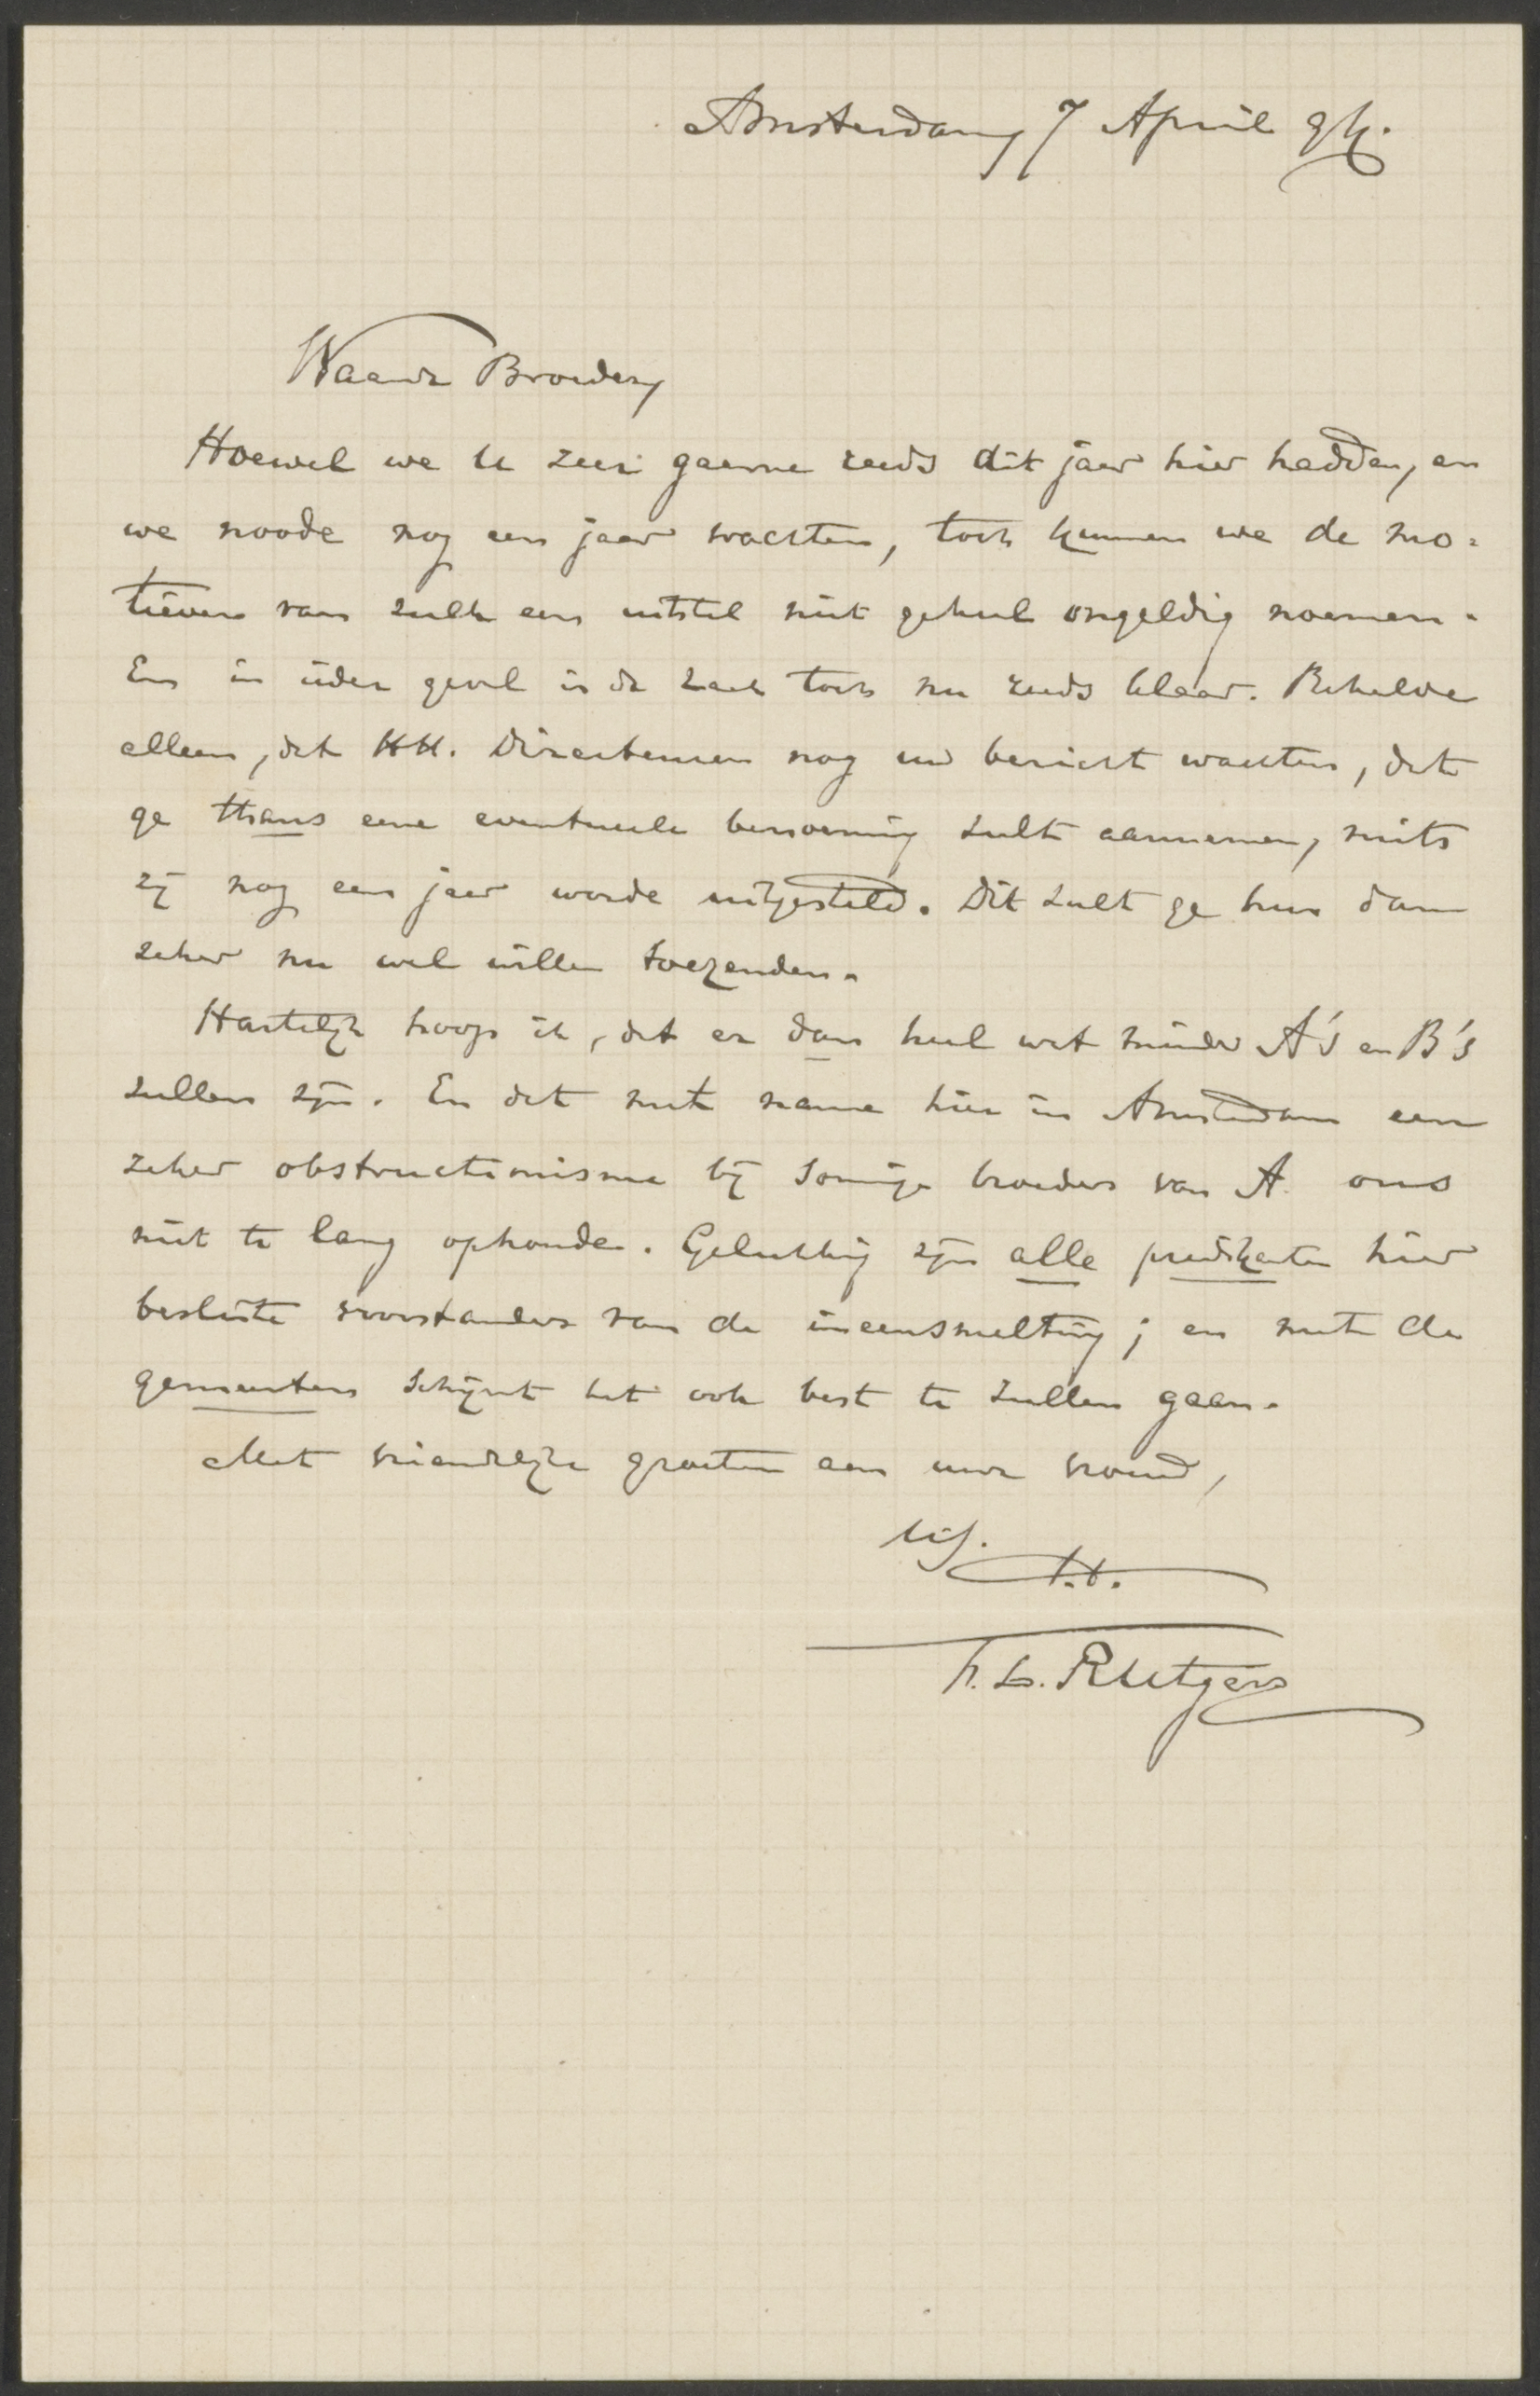 Amsterdam, 7 April 94.
Waarde Broeder,
Hoewel we U zeer gaarne reeds dit jaar hier hadden, en
we noode nog een jaar wachten, toch kunnen we de mo=
tieven van zulk een uitstel niet geheel ongeldig noemen.
En in ieder geval is de zaak toch nu reeds klaar. Behalve
alleen, dat HH. Directeuren nog uw bericht wachten, dat
ge thans eene eventueele benoeming zult aannemen, mits
zij nog een jaar worde uitgesteld. Dit zult ge hun dan
zeker nu wel willen toezenden.
Hartelijk hoop ik, dat er dan heel wat minder A's en B's
zullen zijn. En dat met name hier in Amsterdam een
zeker obstructionisme bij sommige broeders van A. ons
niet te lang ophoude. Gelukkig zijn alle predikanten hier
besliste voorstanders van de ineensmelting; en met de
gemeenten schijnt het ook best te zullen gaan.
Met vriendelijke groeten aan uwe vrouw,
t.t.
F. L. Rutgers